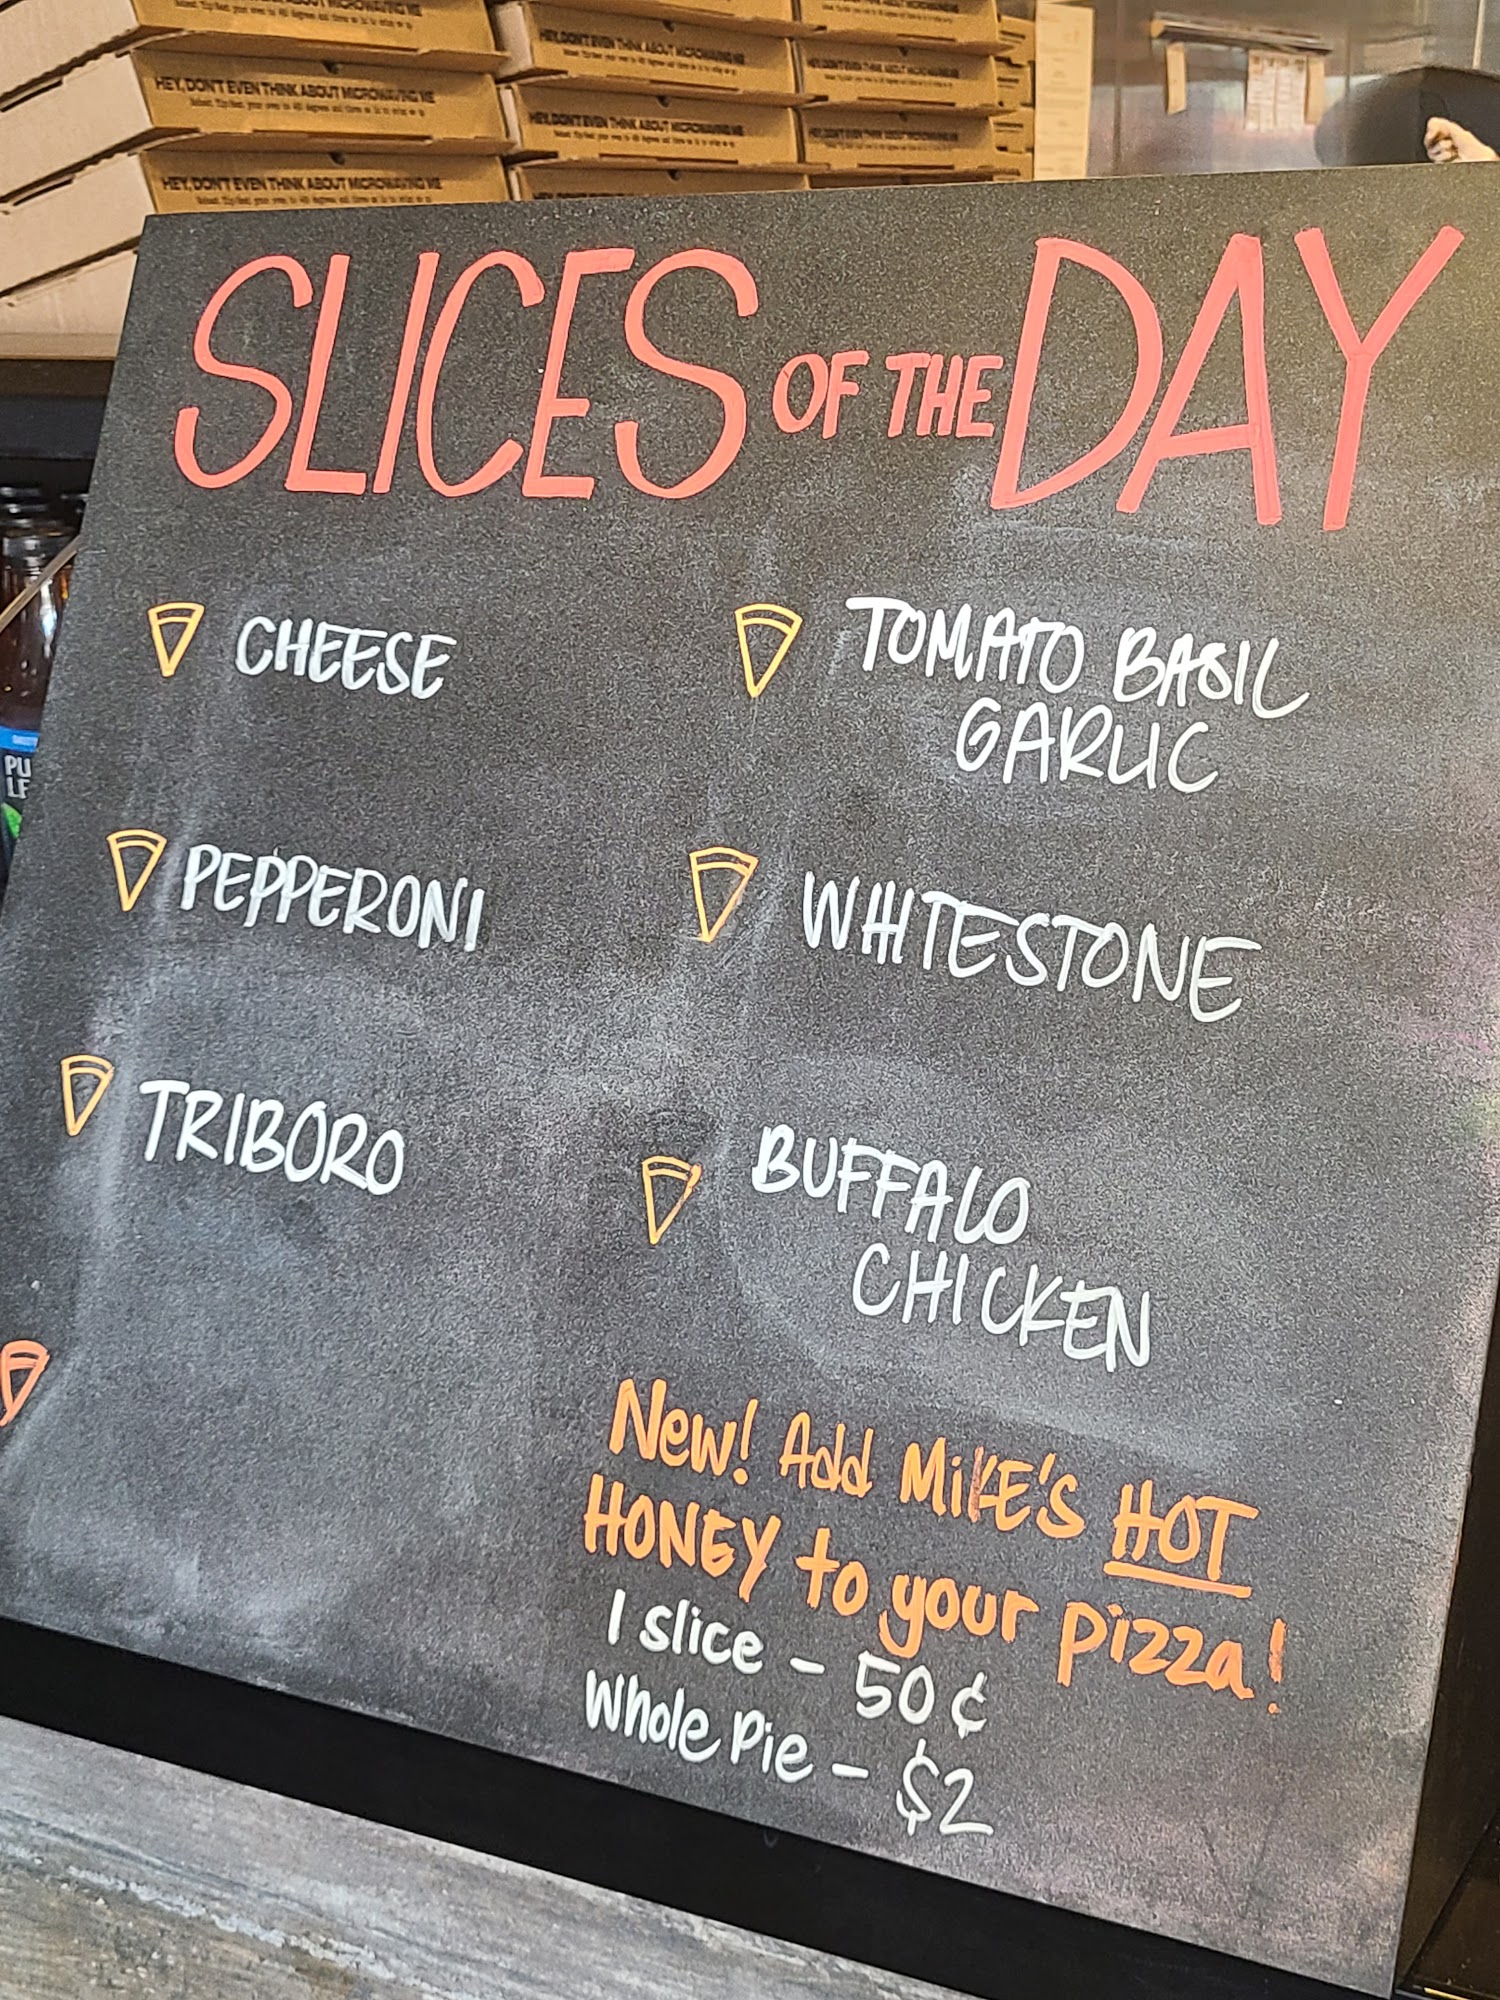 HEY, DON'T EVEN THINK ABOUT MICROWAVING ME
HEY, DON'T EVEN THINK ABOUT MICROWAVING ME
HEY, DON'T EVEN THINK ABOUT MICROWAVING ME
HEY, DON'T EVEN THINK ABOUT MICROWAVING ME
HEY, DON'T EVEN THINK ABOUT MICROWAVING ME
HEY, DON'T EVEN THINK ABOUT MICROWAVING ME
SLICES OF THE DAY
CHEESE
TOMATO BASIL
GARLIC
PEPPERONI
WHITESTONE
TRIBORO
BUFFALO
CHICKEN
New! Add MIKE'S HOT
HONEY to your pizza!
1 slice - 50¢
Whole Pie - $2
PU
LE